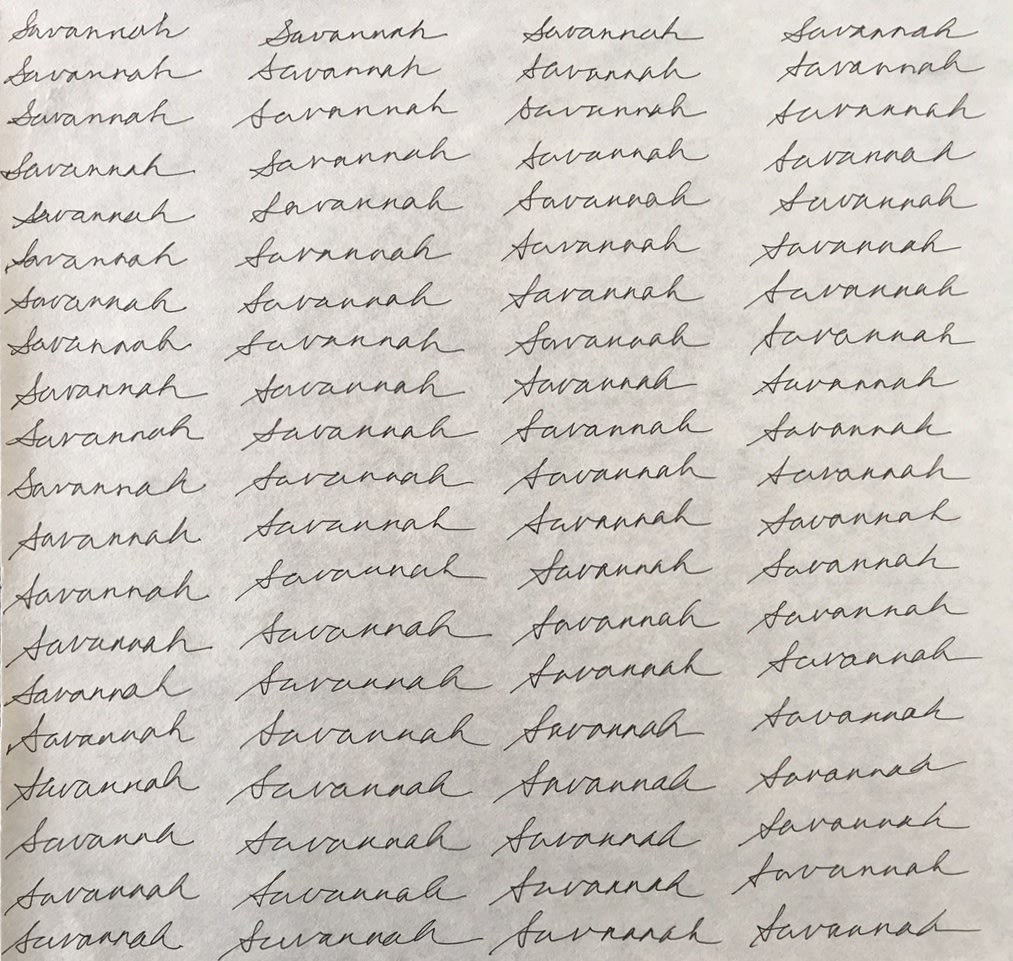 Savannah Savannah Savannah Savannah
Savannah Savannah Savannah Savannah
Savannah Savannah Savannah Savannah
Savannah Savannah Savannah Savannah
Savannah Savannah Savannah Savannah
Savannah Savannah Savannah Savannah
Savannah Savannah Savannah Savannah
Savannah Savannah Savannah Savannah
Savannah Savannah Savannah Savannah
Savannah Savannah Savannah Savannah
Savannah Savannah Savannah Savannah
Savannah Savannah Savannah Savannah
Savannah Savannah Savannah Savannah
Savannah Savannah Savannah Savannah
Savannah Savannah Savannah Savannah
Savannah Savannah Savannah Savannah
Savannah Savannah Savannah Savannah
Savannah Savannah Savannah Savannah
Savannah Savannah Savannah Savannah
Savannah Savannah Savannah Savannah